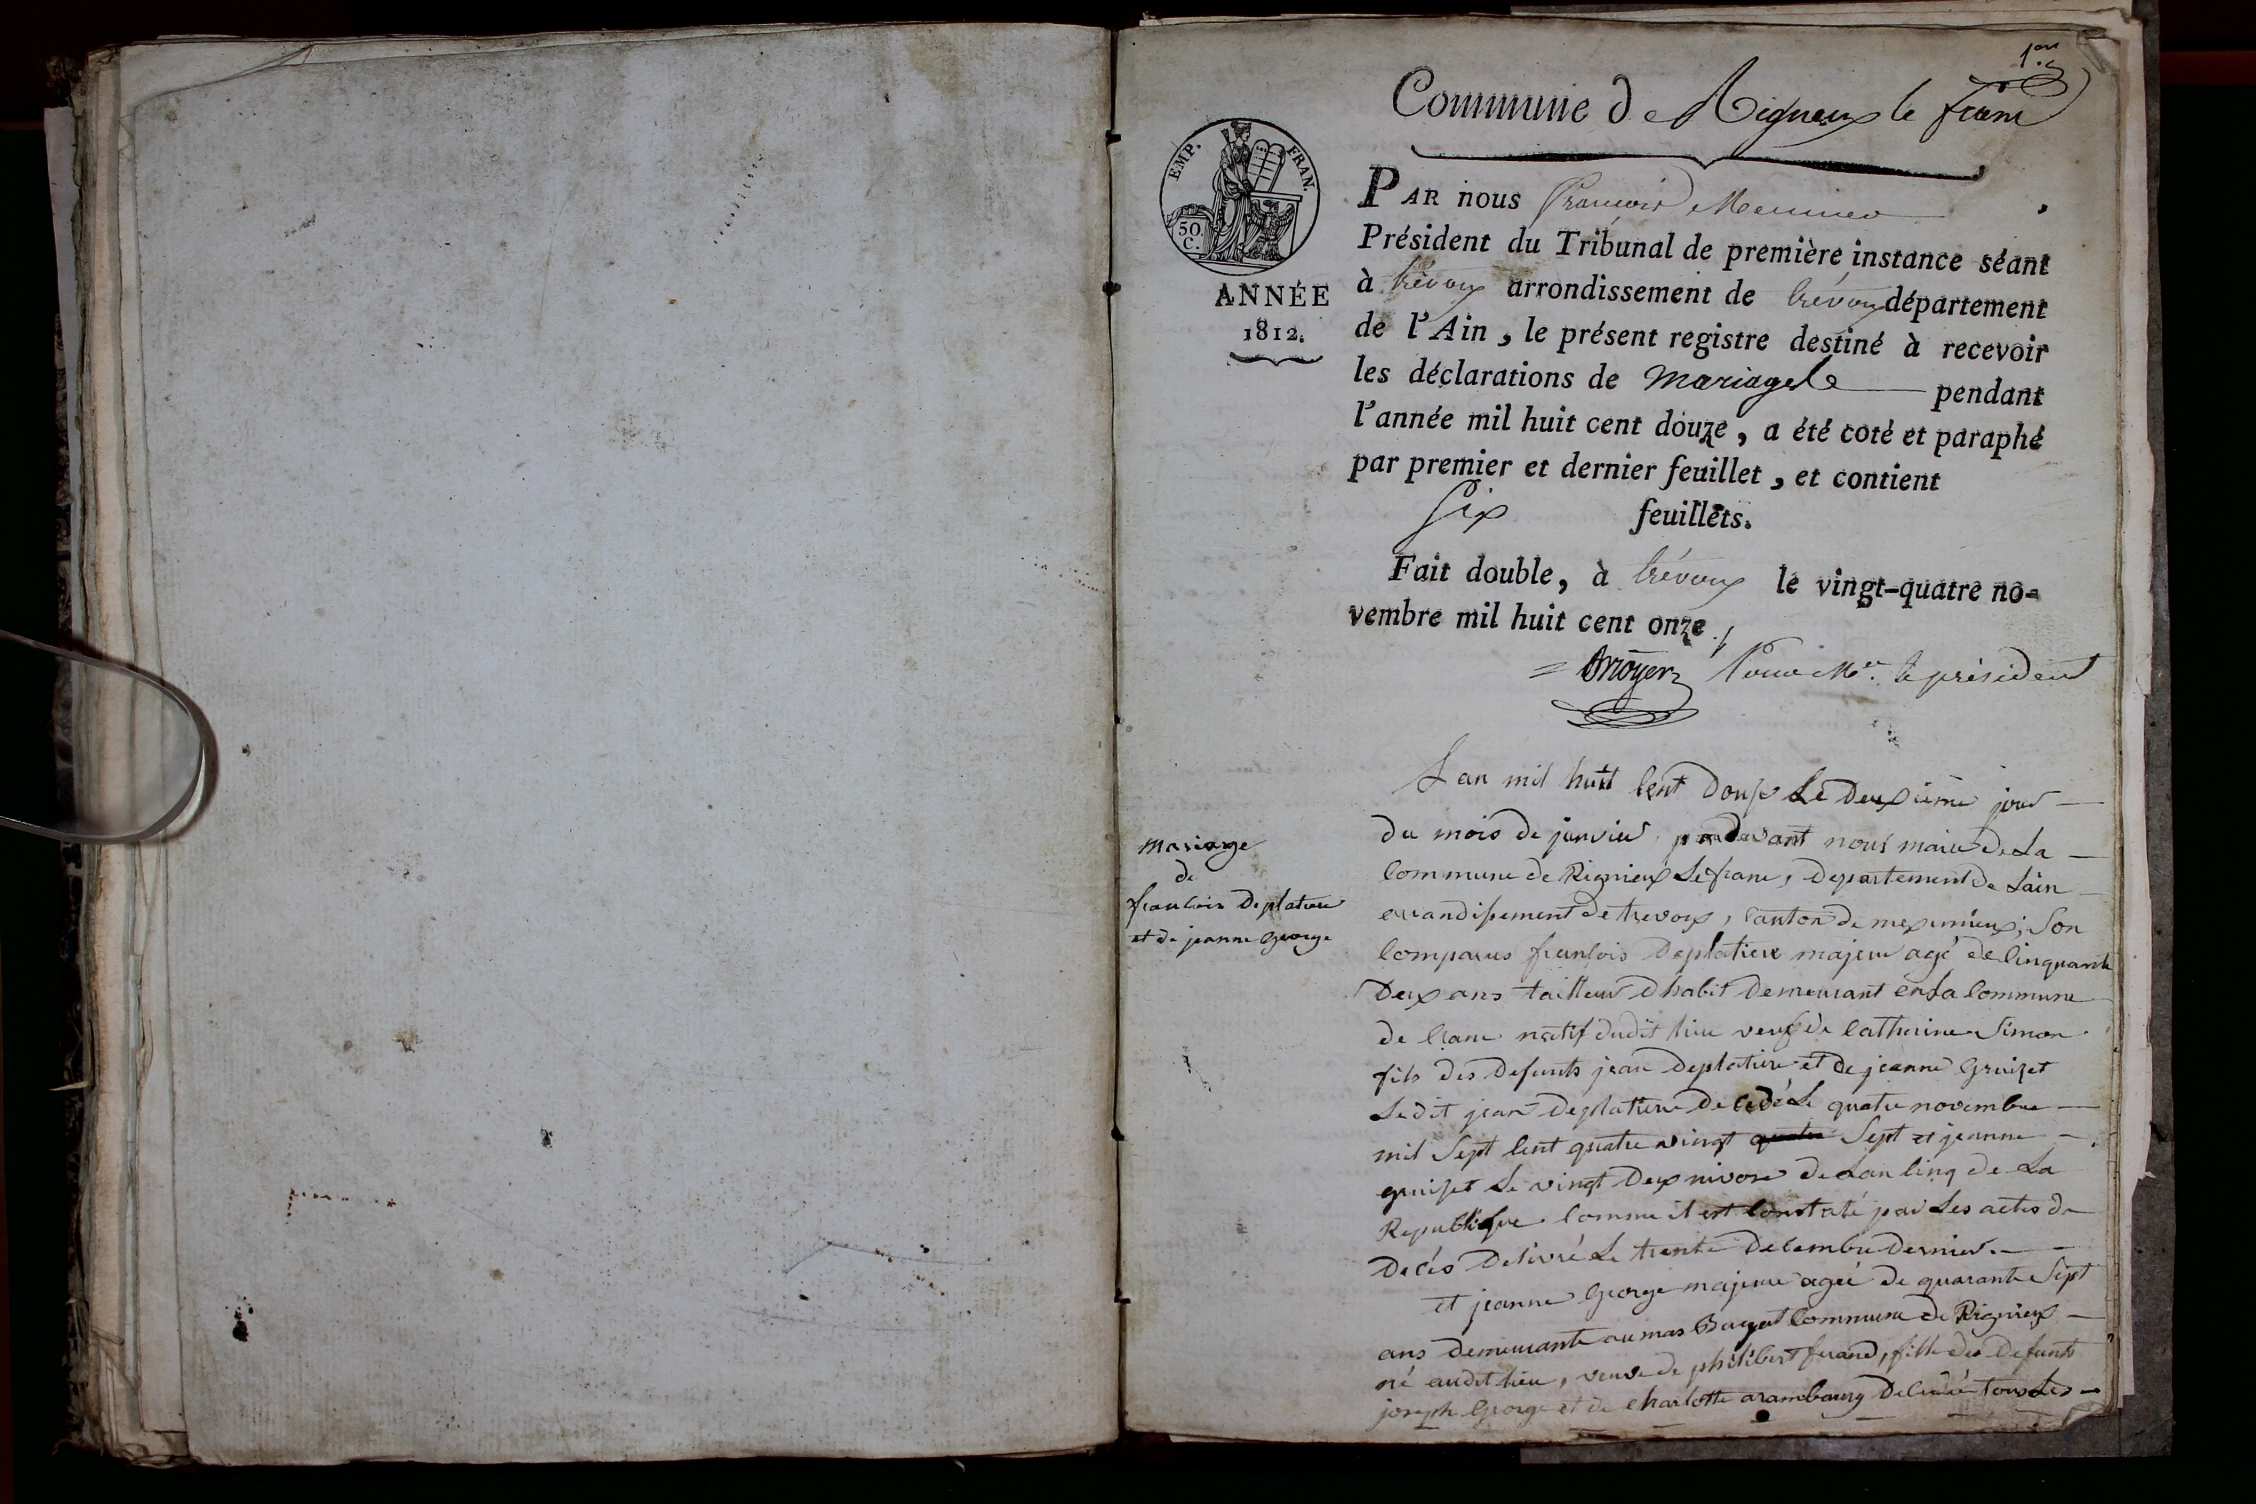 1er
Commune de Rignieux le franc
EMP. FRAN.
50
C.
ANNÉE
1812.
PAR nous François Meunier,
Président du Tribunal de première instance séant
à trévoux arrondissement de trévoux département
de l'Ain, le présent registre destiné à recevoir
les déclarations de mariages pendant
l'année mil huit cent douze, a été coté et paraphé
par premier et dernier feuillet, et contient
Six feuillets.
Fait double, à trévoux le vingt-quatre no-
vembre mil huit cent onze
Pour Mr. le président
mariage
de
francois Deplatiere
et de jeanne George
L an mil huit Cent Douze Le Deuxieme jour
du mois de janvier, pardevant nous maire De La
Commune de Rignieux Le franc, Departement De Lain
arrandissement de trevoux, Canton De meximieux, Son
Comparus françois Deplatiere majeur agé de Cinquante
Deux ans tailleur Dhabit Demeurant en La Commune
de Crans natif dudit lieu veuf de Catherine Simon
fils des Defunts jean Deplatiere et de jeanne Gruizet
Le dit jean Deplatiere Decedé Le quatre novembre
mil Sept Cent quatre vingt quatre Sept et jeanne
gruizet Le vingt Deux nivose de Lan Cinq de La
Republique Comme il est Constaté par Les actes de
Decés Delivré Le trente Decembre Dernier.
et jeanne George majeure ageé de quarante Sept
ans Demeurante au mas Commune de Rignieux
né audit lieu, veuve de philibert ferand, fille des Defunts
joseph George et de Charlotte arambourg Decedé tous Les